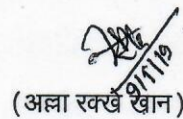 9/1/19
(अल्ला रक्खे खान)